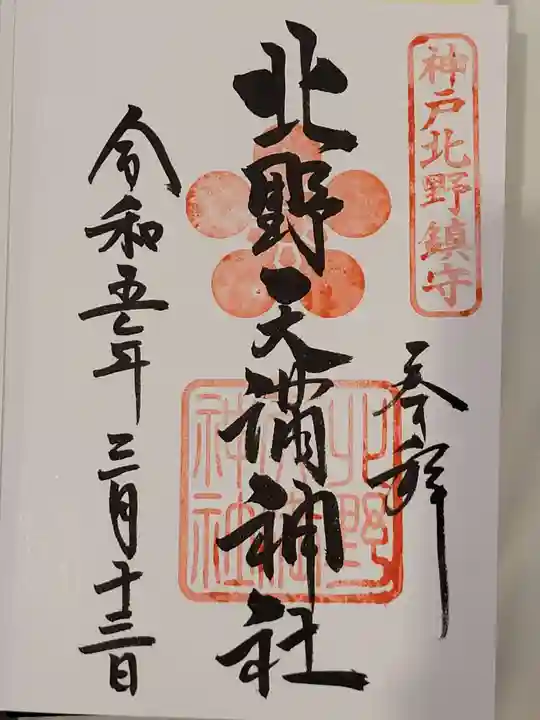 神戸北野鎮守
奉拝
北野天満神社
北野
天満
神社
令和五年三月十三日